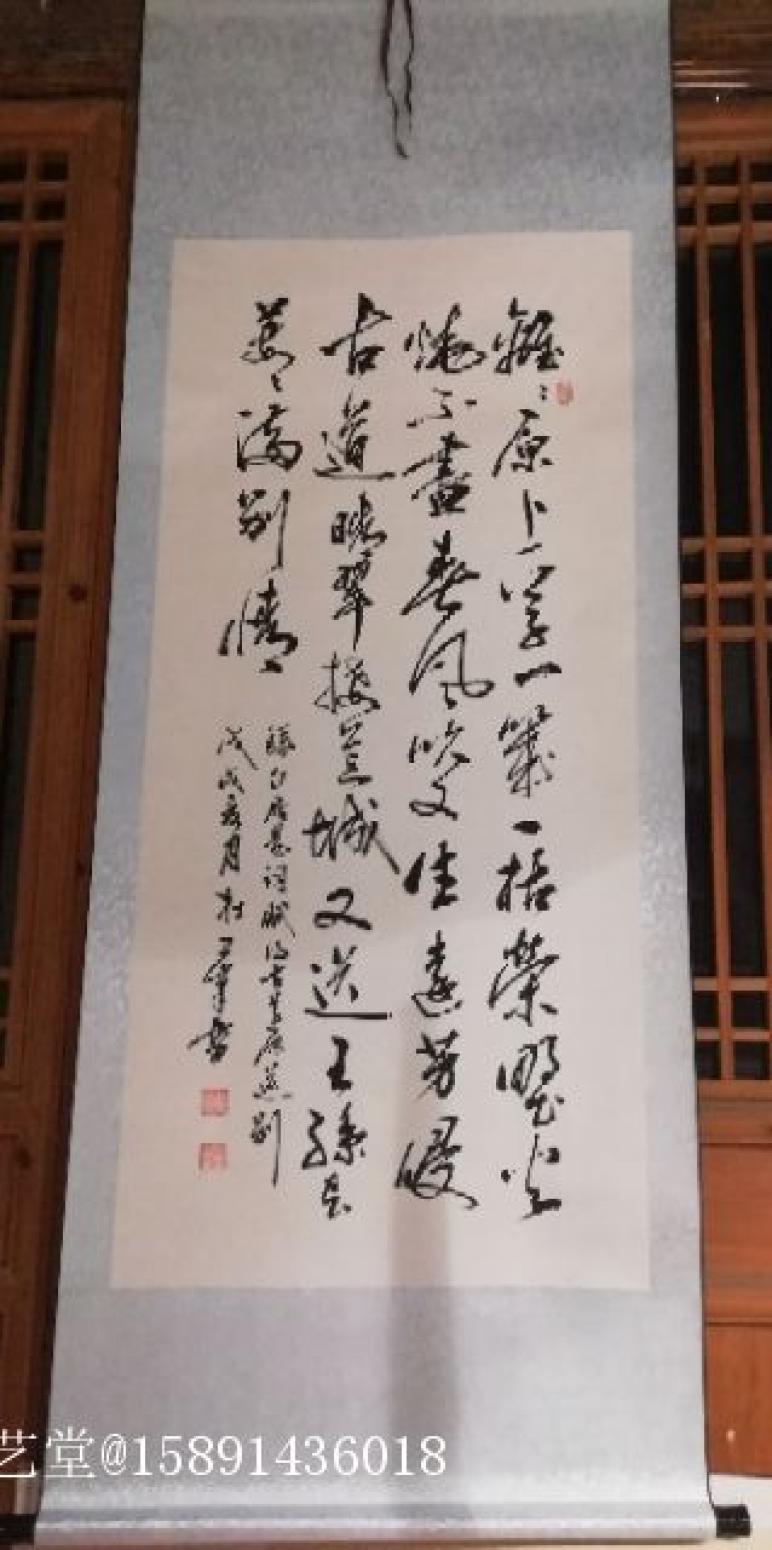 離々原上草一歲一枯榮野火
燒不盡春風吹又生遠芳侵
古道晴翠接荒城又送王孫去
萋々滿別情
錄白居易詞賦得古草原送別
戊戌月杜軍書
艺堂@15891436018